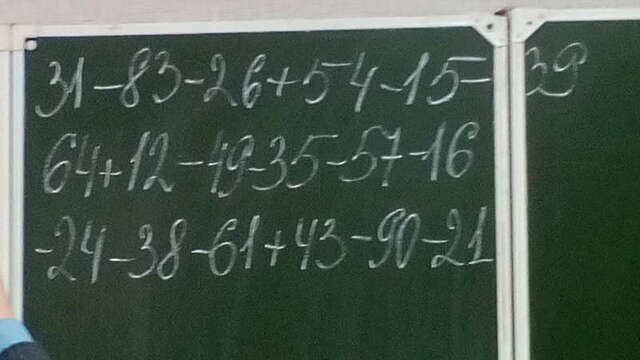 31-83-26+54-15-39
64+12-49-35-57-16
-24-38-61+43-90-21